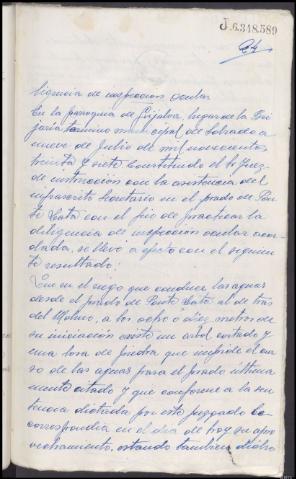 J.6.318.589
24
ligencia de inspección ocular
En la parroquia de Grijalva, lugar de la
término municipal de Sobrado a
nueve de julio de mil novecientos
treinta y siete Constituido el Sr Juez
de instrucción con la asistencia del
infrascrito Secretario en el prado de Pon
te Cato con el fin de practicar la
diligencia de inspección ocular acor
dada, se llevó a efecto con el siguien
te resultado:
Que en el riego que conduce las aguas
desde el prado de Ponte Cato al de trás
del Molino, a los ocho ó diez metros de
su iniciación existe un arbol cortado y
una losa de piedra que impide el cur
so de las aguas para el prado ultima
mente citado y que conforme a la sen
tencia dictada por este juzgado le
correspondia en el dia de hoy su apro
vechamiento, estando tambien dicho